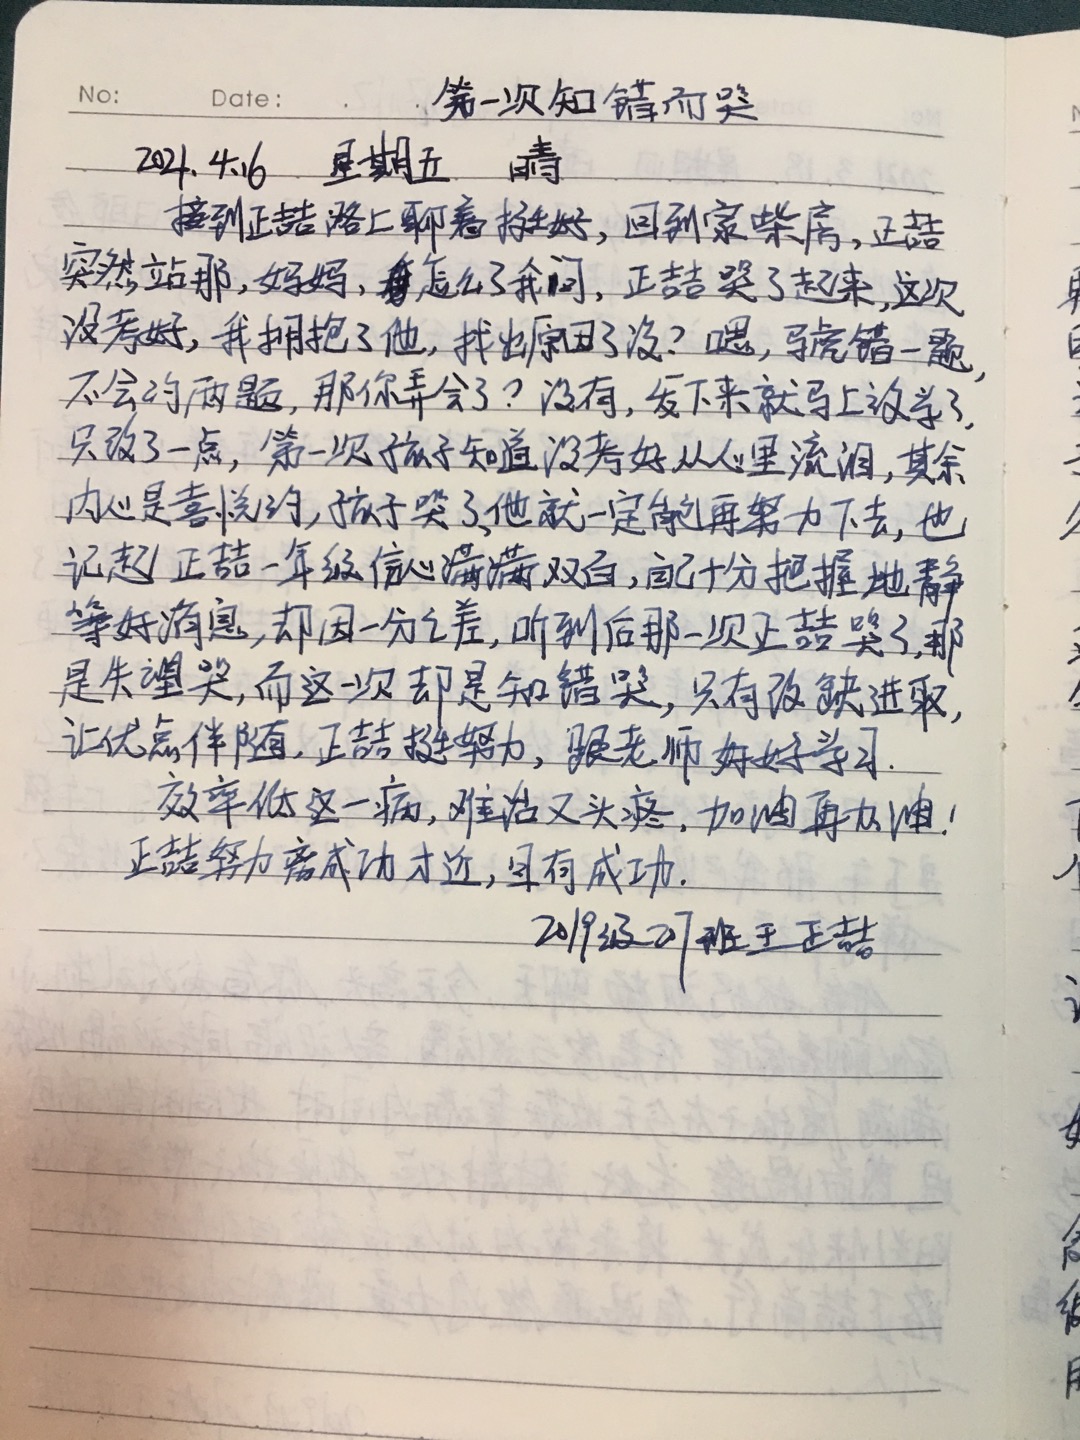 No: Date: 第一次知错而哭
2021.4.16 星期五 晴
接到正喆路上聊着挺好，回到家柴房，正喆
突然站那，妈妈，怎么了我问，正喆哭了起来，这次
没考好，我拥抱了他，找出原因了没？嗯，马虎错一题，
不会的两题，那你弄会了？没有，发下来就马上放学了，
只改了一点，第一次孩子知道没考好从心里流泪，其余
内心是喜悦的，孩子哭了，他就一定能再努力下去，也
记起正喆一年级信心满满双百，自己十分把握地静
等好消息，却因一分之差，听到后那一次正喆哭了，那
是失望哭，而这一次却是知错哭，只有改缺进取，
让优点伴随，正喆挺努力，跟老师好好学习.
效率低这一病，难治又头疼，加油再加油！
正喆努力离成功才近，自有成功.
2019级27班王正喆